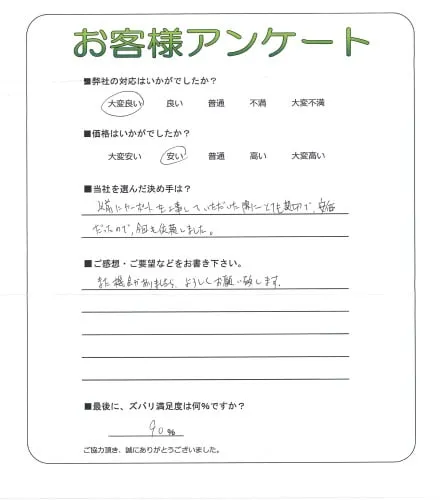 お客様アンケート
■弊社の対応はいかがでしたか？
大変良い 良い 普通 不満 大変不満
■価格はいかがでしたか？
大変安い 安い 普通 高い 大変高い
■当社を選んだ決め手は？
以前にカーポートも工事していただいた際にとても親切で、安価
だったので、今回も依頼しました。
■ご感想・ご要望などをお書き下さい。
また機会がありましたら、よろしくお願い致します。
■最後に、ズバリ満足度は何%ですか？
90%
ご協力頂き、誠にありがとうございました。